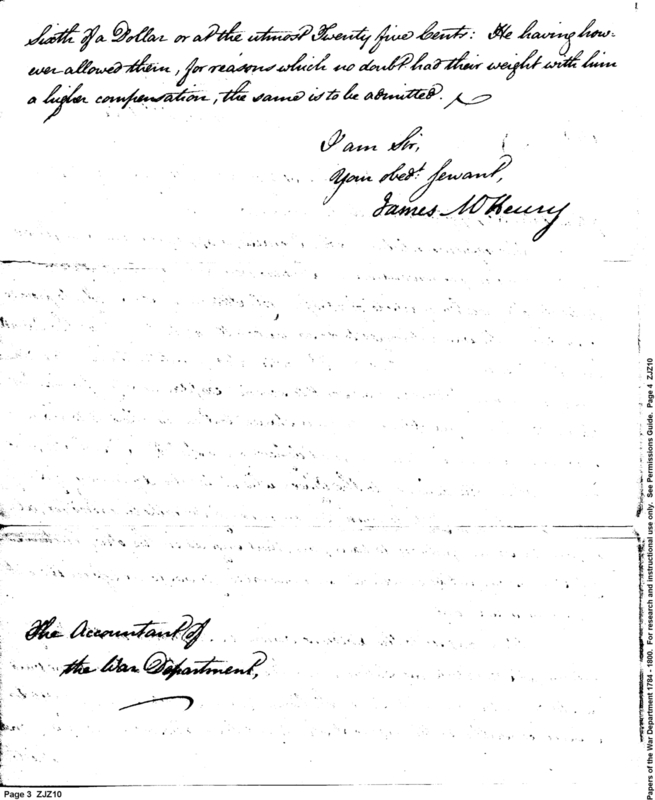 Sixth of a Dollar or at the utmost Twenty five Cents: He having how-
ever allowed them, for reasons which no doubt had their weight with him
a higher compensation, the same is to be admitted.
I am Sir,
Your obedt. servant,
James McHenry
The Accountant of
the War Department,
Page 3 ZJZ10
Papers of the War Department 1784 - 1800. For research and instructional use only. See Permissions Guide. Page 4 ZJZ10